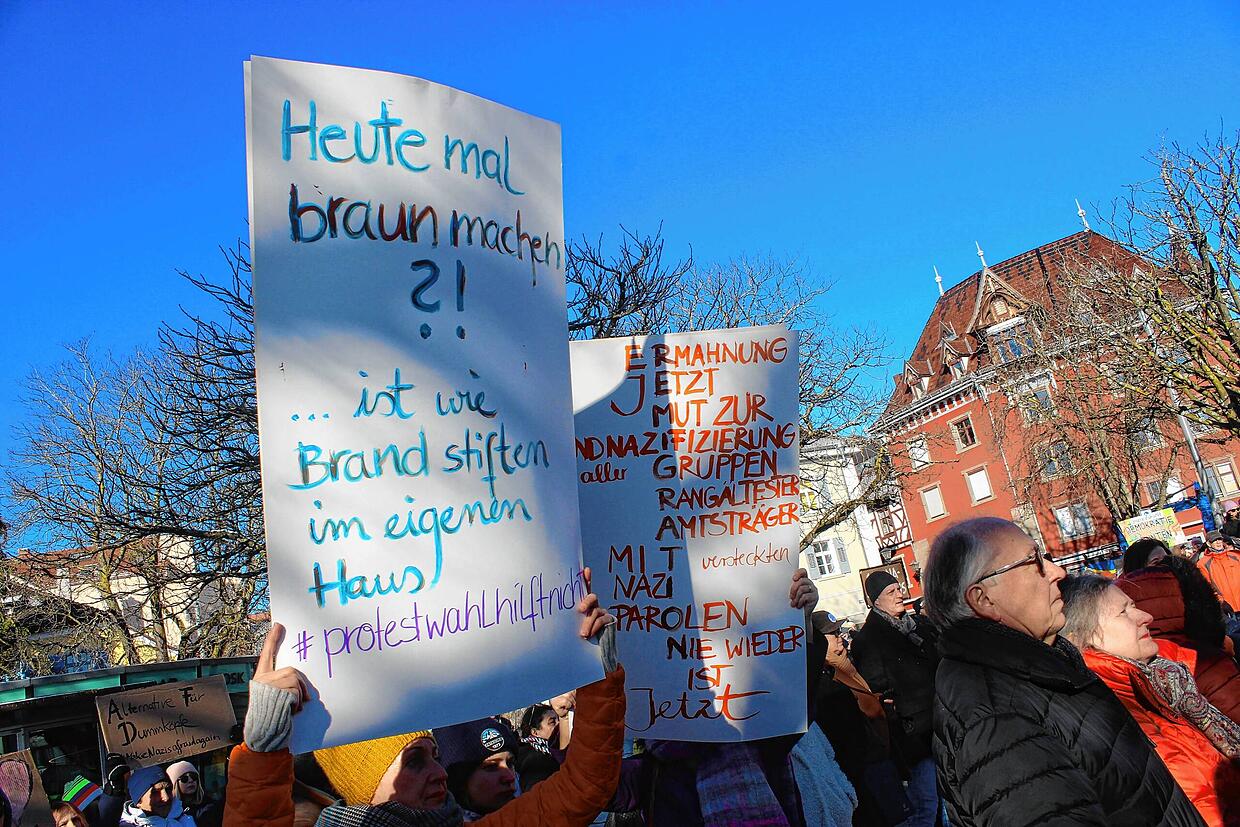 Heute mal
braun machen
?!
... ist wie
Brand stiften
im eigenen
Haus
#protestwahlhilftnicht
ERMAHNUNG
JETZT
MUT ZUR
NDNAZIFIZIERUNG
aller GRUPPEN
RANGÄLTESTER
AMTSTRÄGER
MIT versteckten
NAZI
PAROLEN
NIE WIEDER
IST
Jetzt
Alternative Für
Dummköpfe
MakeNazisafraidagain
DEMOKRATIE